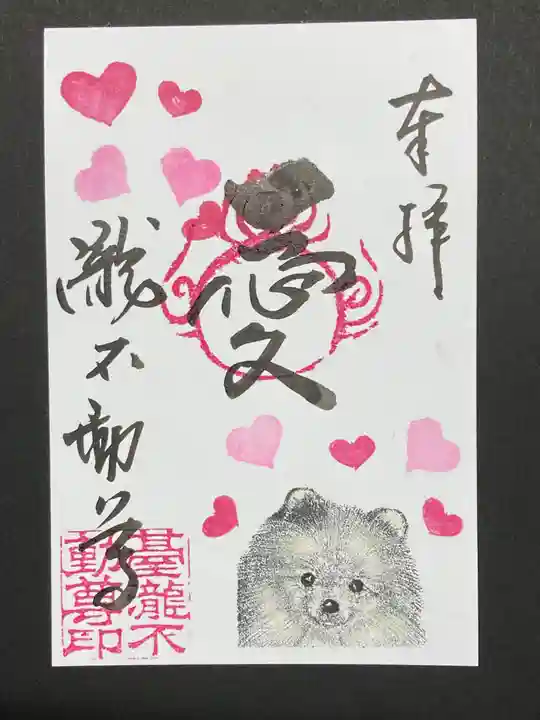 奉拝
愛
瀧不動尊
基瀧不
動尊印